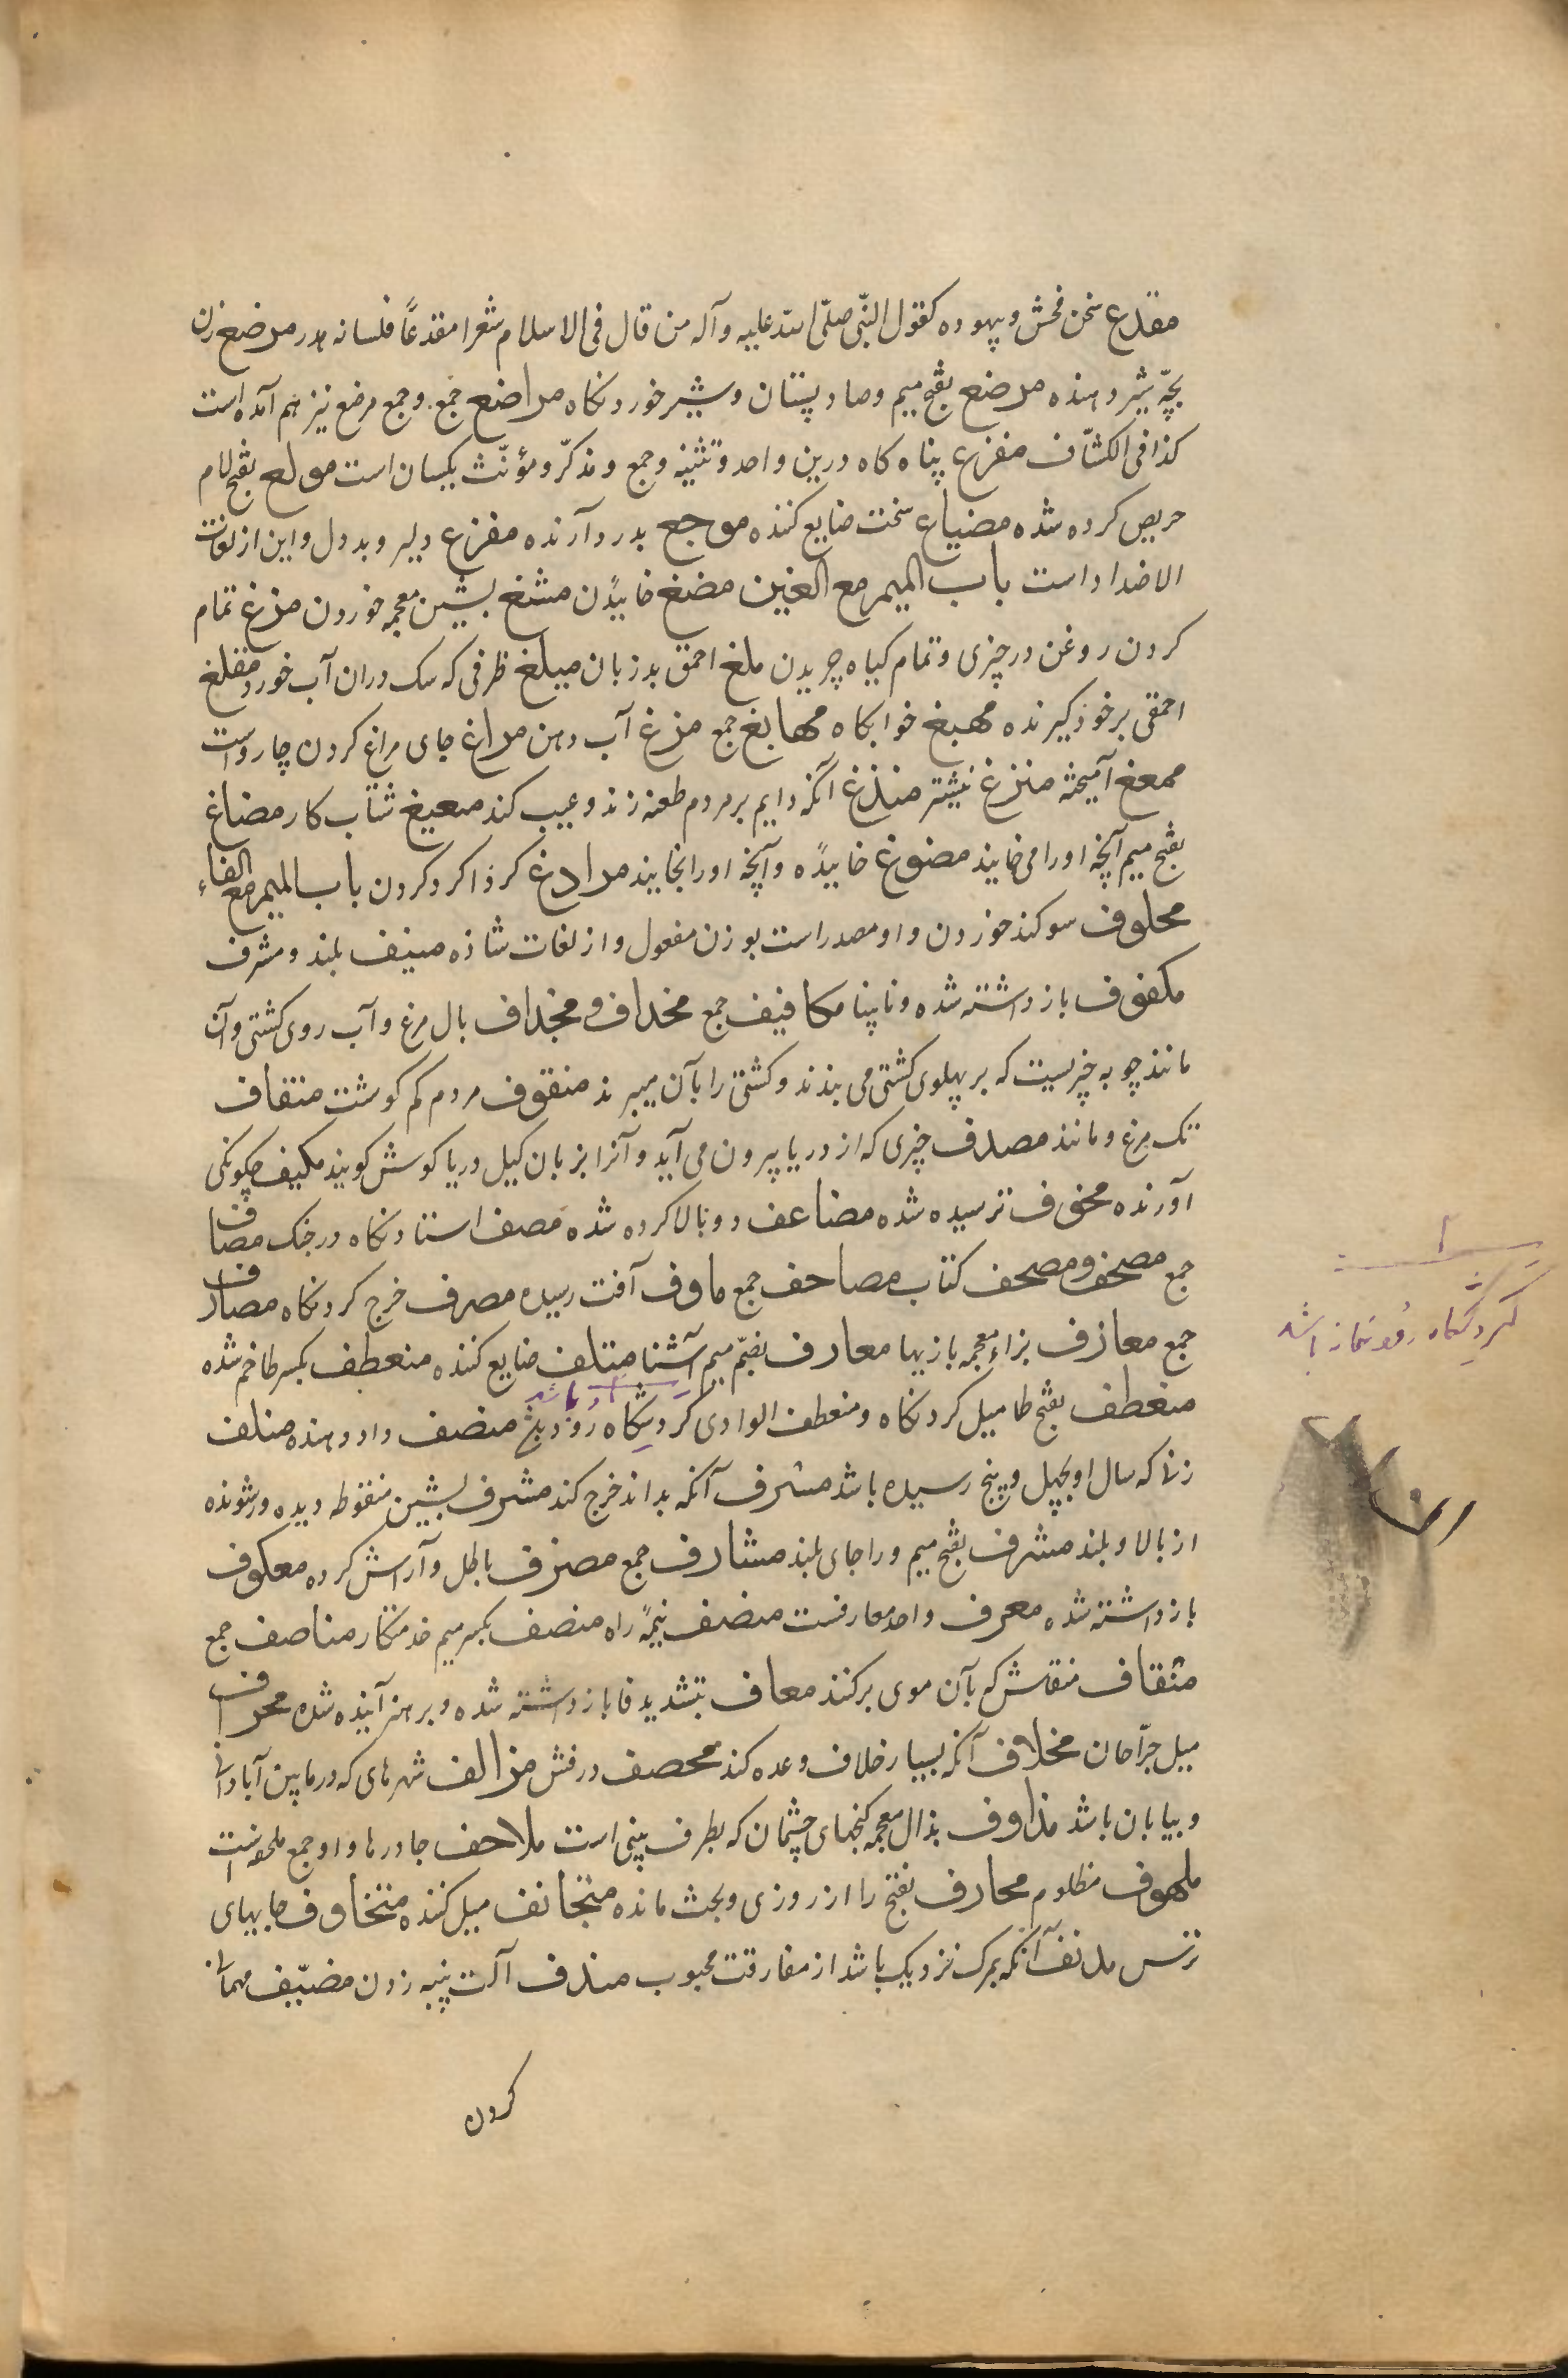 مقذع سخن فحش و بیهوده کقول النّبی صلّی الله علیه وآله من قال فی الاسلام شعرا مقذعاً فلسانه هدر مرضع زن
بچّه شیر دهنده مرضع بفتح میم وصاد پستان وشیر خوردنکاه مراضع جمع وجمع مرضع نیز هم آمده است
کذا فی الکشّاف مفزع پناه کاه و درین واحد و تثنیه و جمع و مذکّر و مؤنّث یکسان است مولع بفتح لام
حریص کرده شده مضیاع سخت ضایع کننده موجع بدرد آرنده مفزع دلیر و بددل و این از لغات
الاضداد است باب المیم مع الغین مضغ خاییدن مشغ بشین معجمه خوردن مرغ تمام
کردن روغن در چیزی و تمام کیاه چریدن ملغ احمق بدزبان میلغ ظرفی که سک دران آب خورد متلغ
احمقی برخود کیرنده مهبغ خوابکاه مهابغ جمع مرغ آب دهن مراغ جای مراغ کردن چارواست
ممغغ آمیخته منزغ نیشتر منذغ آنکه دایم بر مردم طعنه زند و عیب کند معیغ شتاب کار مضاغ
بفتح میم آنچه اورا می خایند مضوغ خاییده و آنچه اورا بخایند مرادغ کرد اکرد کردن باب المیم مع الفاء
محلوف سوکند خوردن و او مصدر است بوزن مفعول و از لغات شاذه منیف بلند و مشرف
مکفوف باز داشته شده و نابینا مکافیف جمع مخداف و مجداف بال مرغ و آب روی کشتی و آن
مانند چوبه چیزیست که بر پهلوی کشتی می بندند و کشتی را بآن میبرند منقوف مردم کم کوشت منقاف
تک مرغ و مانند مصدف چیزی که از دریا بیرون می آید و آنرا بزبان کیل دریا کوش کویند مکیف چکونکی
آورنده مخوف ترسیده شده مضاعف دو بالا کرده شده مصف استادنکاه در جنک مصاف
جمع مصحف و مصحف کتاب مصاحف جمع ماوف آفت رسیده مصرف خرج کردنکاه مصارف
جمع معازف بزاء معجمه بازیها معارف بضمّ میم آشنا متلف ضایع کننده منعطف بکسر طا خم شده
منعطف بفتح طا میل کردنکاه و منعطف الوادی کردشکاه رود منصف داد دهنده منلف
زنا که سال او بچهل و پنج رسیده باشد مسرف آنکه بد اند خرج کند مشرف بشین منقوطه دیده ور شونده
از بالا و بلند مشرف بفتح میم و را جای بلند مشارف جمع مصزف باطل و آرایش کرده معکوف
باز داشته شده معرف واحد معارفست منصف نیمه راه منصف بکسر میم خدمتکار مناصف جمع
منقاف منقاش که بآن موی برکنند معاف بتشدید فا باز داشته شده و برهنر آینده شده محراف
میل جرّاحان مخلاف آنکه بسیار خلاف وعده کند محصف درفش مزالف شهرهای که در مابین آبادانی
و بیابان باشد مذاوف بذال معجمه کنجهای چشمان که بطرف بینی است ملاحف جادرها و او جمع ملحفه است
ملهوف مظلوم محارف بفتح را از روزی و بخت مانده متجانف میل کننده متخاوف جایهای
ترس مدنف آنکه بمرک نزدیک باشد از مفارقت محبوب مندف آلت پنبه زدن مضیّف مهمانی
کردن
کردشکاه رود باشد